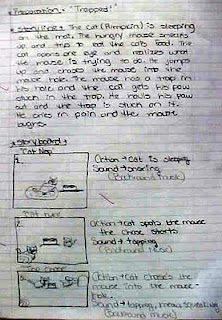 * Preparation: "Trapped!"
* Story line: The Cat (Pumpkin) is sleeping
on the mat. The hungry mouse sneaks
up and trip to eat the cat's food. The
cat opens one eye and realizes what
the mouse is trying to do. He jumps
up and chases the mouse into the
mouse hole. The mouse has a trap in
his hole and the cat gets his paw
stuck in the trap. He pulls his paw
out and the trap is stuck on it.
He cries in pain and the mouse
laughs.
* Story board:
Cat Nap
1.
Action → Cat is sleeping
Sound → snoring
(Background music)
2.
Action → Cat spots the mouse
the chase starts
Sound → tapping
(Background music)
The chase
3.
Action → Cat chases the
mouse into the mouse-
hole.
Sound → tapping, meow, squeaking
(Background music)